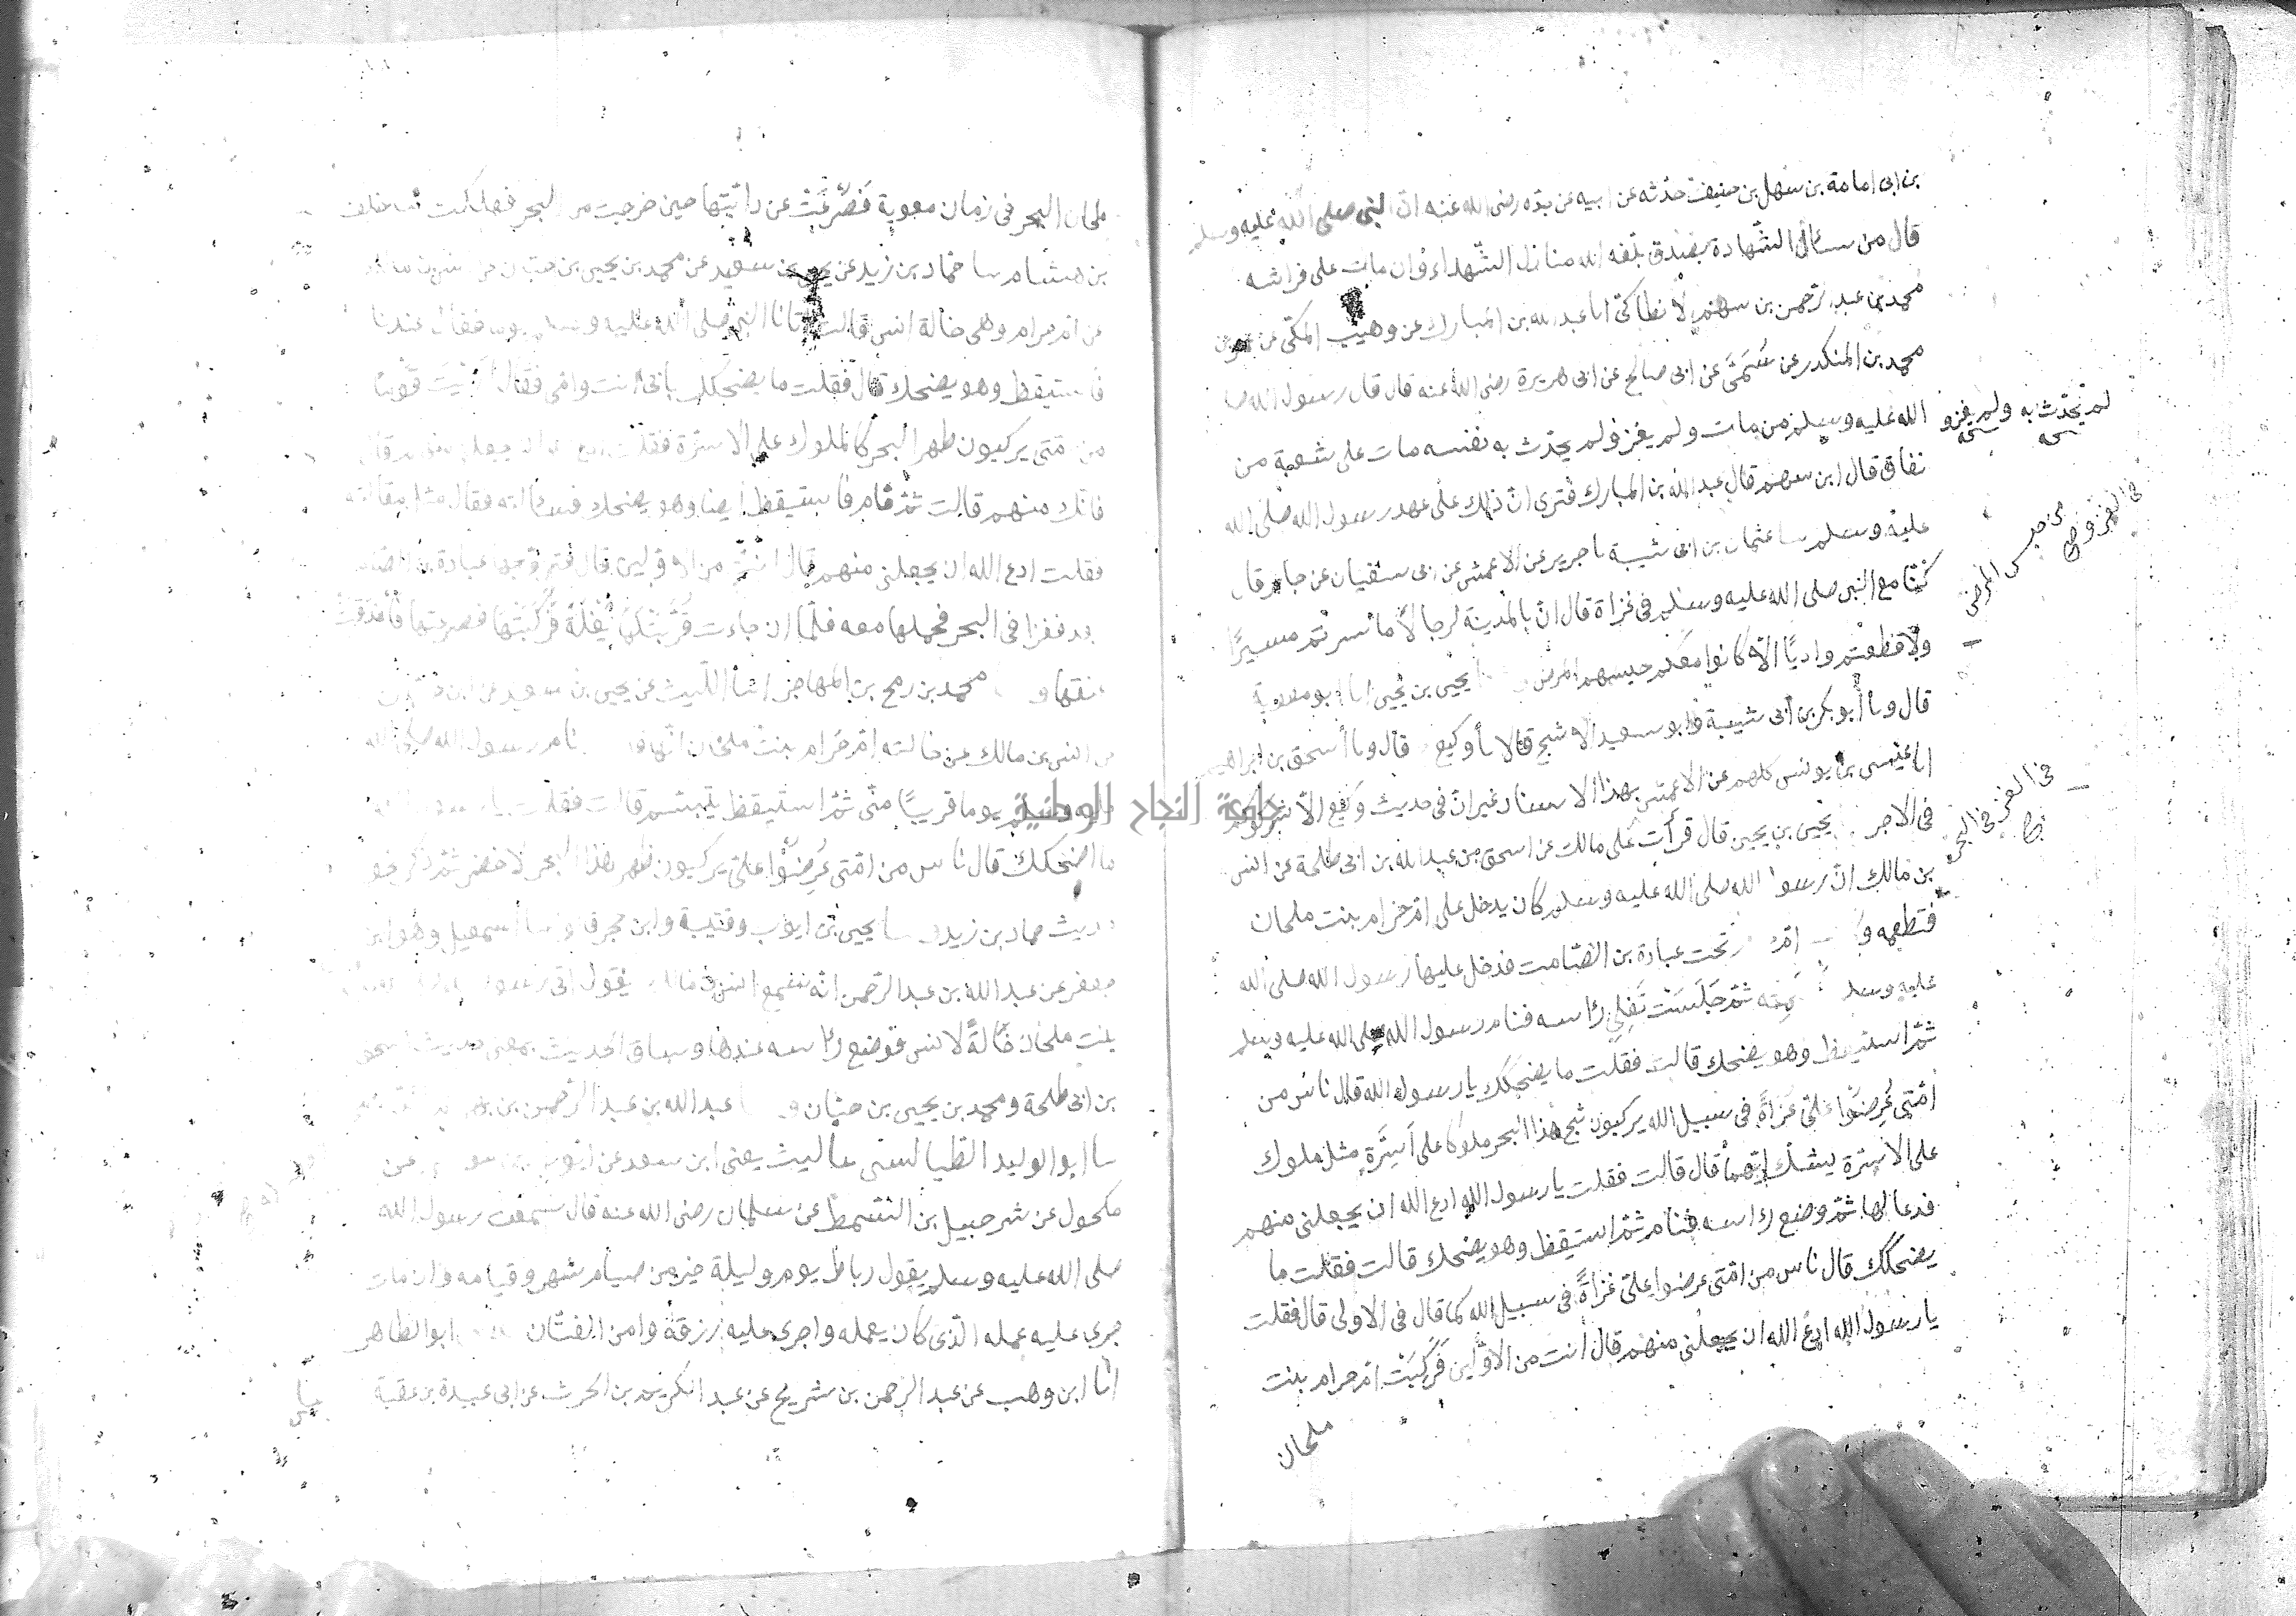 بن ابى امامة بن سهل بن حنيف حدثه عن ابيه عن جده رضى الله عنه انّ النبى صلى الله عليه وسلم
قال من سأل الشّهادة بصدق بلّغه الله منازل الشّهداء وان مات على فراشه
محمد بن عبد الرّحمن بن سهم الانطاكىّ انا عبد الله بن المبارك عن وهيب المكّى عن عمر بن
محمد بن المنكدر عن سُمَىّ عن ابى صالح عن ابى هريرة رضى الله عنه قال قال رسول الله صلى
الله عليه وسلم من مات ولم يغز ولم يحدّث به نفسه مات على شعبة من
لم يحدّث به ولم يغزو
نفاق قال ابن سهم قال عبد الله بن المبارك فنرى انّ ذلك على عهد رسول الله صلى الله
عليه وسلم سا عثمان بن ابى شيبة نا جرير عن الاعمش عن ابى سفيان عن جابر قال
كنّا مع النبى صلى الله عليه وسلم فى غزاة قال انّ بالمدينة لرجالاً ما سرتم مسيرًا
ولا قطعتم واديًا الّا كانوا معكم حبسهم المرض يحيى بن يحيى انا ابو معوية
قال ونا أبو بكر بن أبى شيبة وابو سعيد الاشج قالا نا وكيع قال ونا أسحق بن ابراهيم
انا عيسى بن يونس كلهم عن الاعمش بهذا الاسناد غير انّ فى حديث وكيع الّا شركوكم
فى الاجر يحيى بن يحيى قال قرأت على مالك عن اسحق بن عبد الله بن ابى طلحة عن انس
فى الغزو فى البحر
بن مالك انّ رسول الله صلى الله عليه وسلم كان يدخل على امّ حرام بنت ملحان
فتطعمه و امّ تحت عبادة بن الصّامت فدخل عليها رسول الله صلى الله
عليه وسلم ثمّ جَلَسَتْ تَفْلِى رأسه فنام رسول الله صلى الله عليه وسلم
ثمّ استيقظ وهو يضحك قالت فقلت ما يضحكك يا رسول الله قال ناس من
امّتى عُرِضُوا علىّ غزاةً فى سبيل الله يركبون ثبج هذا البحر ملوكا على أسِرَّةٍ مثل ملوك
على الاسرّة يشكّ ايّهما قال قالت فقلت يا رسول الله ادع الله ان يجعلنى منهم
فدعا لها ثمّ وضع رأسه فنام ثمّ استيقظ وهو يضحك قالت فقلت ما
يضحكك قال ناس من امّتى عرضوا علىّ غزاةً فى سبيل الله كما قال فى الاولى قال فقلت
يا رسول الله ادع الله ان يجعلنى منهم قال أنت من الاوّلين فركبَتْ امّ حرام بنت
ملحان
ملحان البحر فى زمان معوية فَصُرِعَتْ عن دابّتها حين خرجت من البحر فهلكت خلف
بن هشام سا حمّاد بن زيد عن يحيى بن سعيد عن محمد بن يحيى بن حبّان عن انس بن مالك
عن امّ حرام وهى خالة انس قالت اتانا النبى صلى الله عليه وسلم يوما فقال عندنا
فاستيقظ وهو يضحك قال فقلت ما يضحكك بأبى أنت وامى فقال أُريتُ قومًا
من امّتى يركبون ظهر البحر كالملوك على الاسرّة فقلت ادع الله ان يجعلنى منهم قال
فانّك منهم قالت ثمّ قام فاستيقظ أيضا وهو يضحك فسألته فقال مثل مقالته
فقلت ادع الله ان يجعلنى منهم قال أنتِ من الاوّلين قال فتزوّجها عبادة بن الصّامت
بعد فغزا فى البحر فحملها معه فلمّا ان جاءت قُرِّبَتْ لها بَغْلَةٌ فركبَتْها فصرعتها فاندقّتْ
عنقها و محمد بن رمح بن المهاجر انبا اللّيث عن يحيى بن سعيد عن ابن حبّان
عن انس بن مالك عن خالته امّ حرام بنت ملحان انّها نام رسول الله صلى الله
عليه وسلم يوما قريبًا منّى ثمّ استيقظ يتبسّم قالت فقلت يا
ما اضحكك قال ناس من امّتى عُرِضُوا علىّ يركبون ظهر هذا البحر الاخضر ثمّ ذكر نحو
حديث حماد بن زيد سا يحيى بن ايوب وقتيبة وابن حجر قالوا سا أسمعيل وهو ابن
جعفر عن عبد الله بن عبد الرّحمن انّه سمع انس بن مالك يقول اتى رسول
بنت ملحان خَالَةً لانس فوضع رأسه عندها وساق الحديث بمعنى حديث اسحق
بن ابى طلحة ومحمد بن يحيى بن حبّان عبد الله بن عبد الرّحمن بن
سا ابو الوليد الطّيالسىّ سا ليث يعنى ابن سعد عن ايّوب بن موسى عن
مكحول عن شرحبيل بن السّمط عن سلمان رضى الله عنه قال سمعت رسول الله
صلى الله عليه وسلم يقول رباط يوم وليلة خير من صيام شهر وقيامه وان مات
جرى عليه عمله الّذى كان يعمله واجرى عليه رزقه وامن الفتّان ابو الطّاهر
انا ابن وهب عن عبد الرّحمن بن شريح عن عبد الكريم بن الحرث عن ابى عبيدة بن عقبة
جامعة النجاح الوطنية